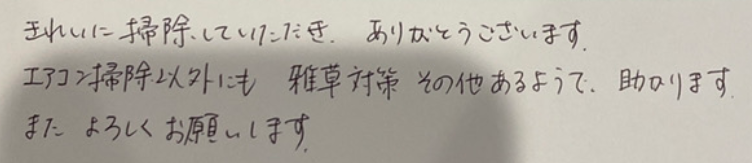 きれいに掃除していただき、ありがとうございます。
エアコン掃除以外にも 雑草対策 その他あるようで、助かります。
また よろしくお願いします。